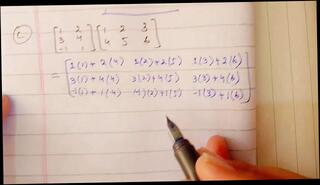 c) [1 2 [1 2 3
3 4 4 5 6]
-1 1]
= [1(1)+2(4) 1(2)+2(5) 1(3)+2(6)
3(1)+4(4) 3(2)+4(5) 3(3)+4(6)
-1(1)+1(4) -1(2)+1(5) -1(3)+1(6)]